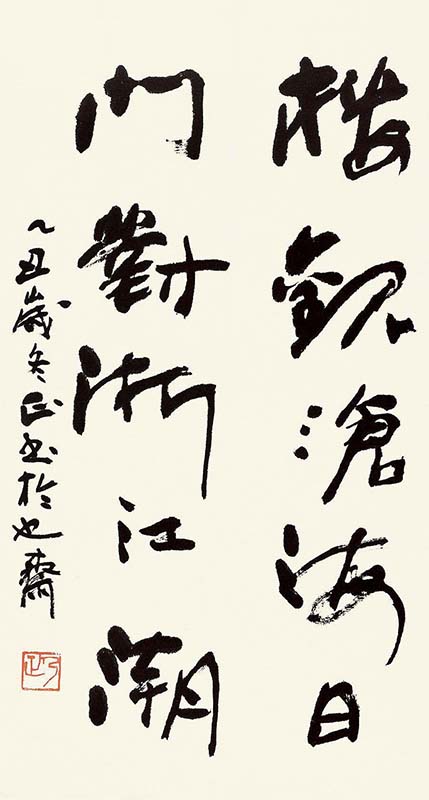 樓觀滄海日
門對浙江潮
乙丑歲冬正书於也齋